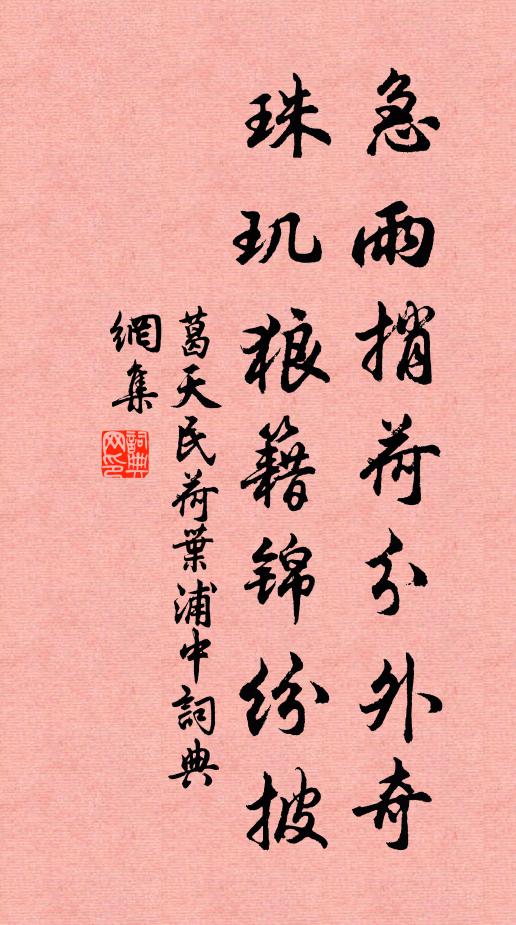 急雨捎荷分外奇
珠玑狼籍锦纷披
葛天民荷葉浦中詞典
網集
詞典
网印